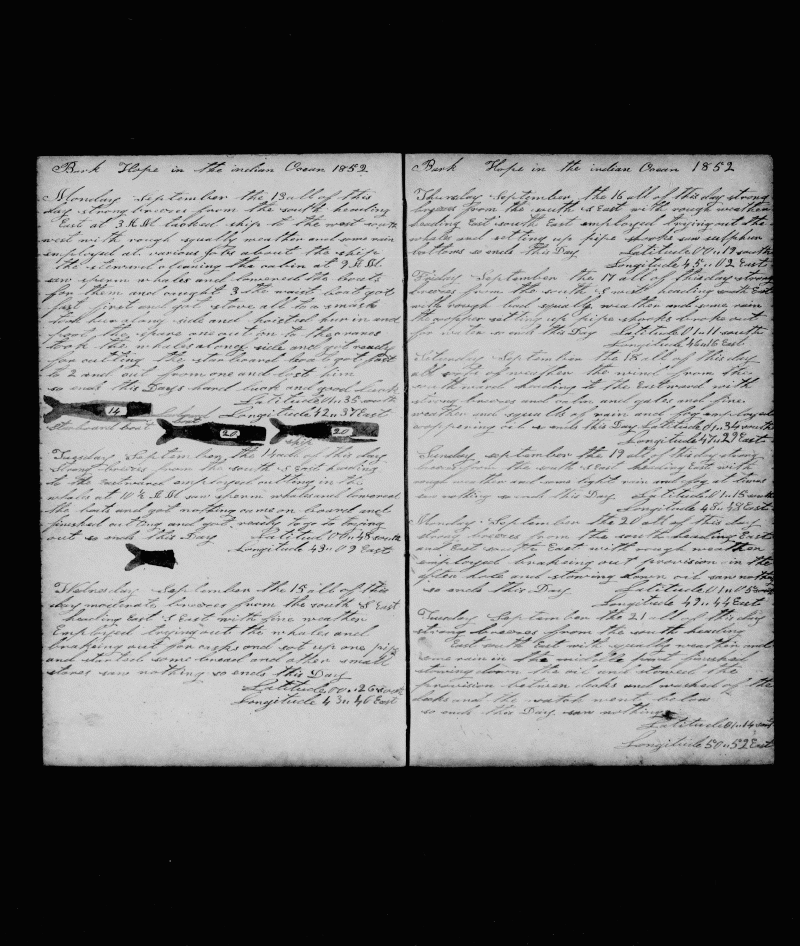 Bark Hope in the indian Ocean 1852
Monday September the 13 all of this
day strong breezes from the south heading
East at 3 A M tacked ship to the west south
west with rough squally weather and some rain
employed at various jobs about the ship
the steward cleaning the cabin at 9 A M
saw sperm whales and lowered the boats
for them and caught 3 the waist boat got
fast first and got stove all to a smash
took him along side and hoisted her in and
got the spare one on to the cranes
took the whales along side and got ready
for cutting the starboard boat got fast
to 2 and cut from one and lost him
so ends this Days hard luck and good
Latitude 01 " 35 south
Longitude 42 " 37 East
14
20
20
boat
ship
Tuesday September the 14 all of this day
strong breezes from the south S East heading
to the Eastward employed cutting in the
whales at 10 ½ A M saw sperm whales and lowered
the boats and got nothing came on board and
finished cutting and got ready to go to trying
out so ends this Day Latitud 00 " 48 south
Longitude 43 " 09 East
Wednesday September the 15 all of this
day moderate breezes from the south S East
heading East S East with fine weather
Employed trying out the whales and
breaking out for casks and set up one pipe
and started some bread and other small
stores saw nothing so ends this Day
Latitude 00 " 26 south
Longitude 43 " 40 East
Bark Hope in the indian Ocean 1852
Thursday September the 16 all of this day strong
breezes from the south S East with rough weather
heading East south East employed trying out the
whales and setting up pipe shooks saw sulphur
bottoms so ends this Day Latitude 00 " 19 south
Longitude 45 " 02 East
Friday September the 17 all of this day strong
breezes from the south S east heading south East
with rough bad squally weather and some rain
the cooper setting up pipe shooks broke out
for so ends this Day Latitude 01 " 11 south
Longitude 46 " 16 East
Saturday September the 18 all of this day
all sorts of weather the wind from the
southward heading at the Eastward with
strong breezes and calm and gales and fine
weather and squalls of rain and fog employed
coopering oil so ends this Day Latitude 01 " 34 south
Longitude 47 " 29 East
Sunday september the 19 all of this day strong
breezes from the south S East heading East with
rough weather and some light rain and fog at times
saw nothing so ends this Day Latitude 01 " 15 south
Longitude 48 " 48 East
Monday September the 20 all of this day
strong breezes from the south heading East
and East south East with rough weather
employed breaking out provision in the
after hole and stowing down oil saw nothing
so ends this Day Latitude 01 " 05 south
Longitude 49 " 44 East
Tuesday September the 21 all of this day
strong breezes from the south heading
East south East with squally weather and
some rain in the middle part finished
stowing down the oil and stowed the
provision between decks and washed of the
decks and the watch went below
so ends this Day saw nothing
Latitude 01 " 14 south
Longitude 50 " 52 East